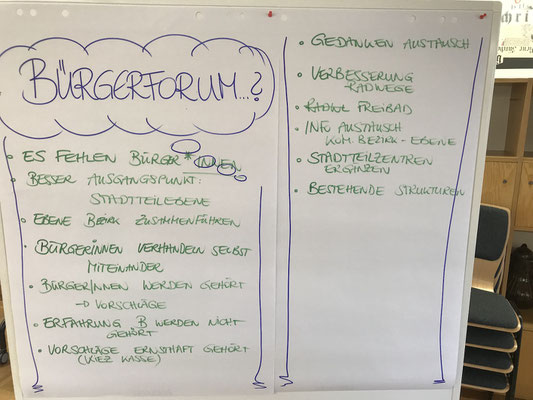 BÜRGERFORUM...?
• ES FEHLEN BÜRGER*INNEN
• BESSER AUSGANGSPUNKT:
STADTTEILEBENE
• EBENE BEZIRK ZUSAMMENFÜHREN
• BÜRGERINNEN VERHANDELN SELBST
MITEINANDER
• BÜRGER/NNEN WERDEN GEHÖRT
→ VORSCHLÄGE
• ERFAHRUNG B WERDEN NICHT
GEHÖRT
• VORSCHLÄGE ERNSTHAFT GEHÖRT
(KIEZ KASSE)
• GEDANKEN AUSTAUSCH
• VERBESSERUNG
RADWEGE
• FREIBAD
• INFO AUSTAUSCH
KOM. BEZIRK - EBENE
• STADTTEILZENTREN
ERGÄNZEN
• BESTEHENDE STRUKTUREN